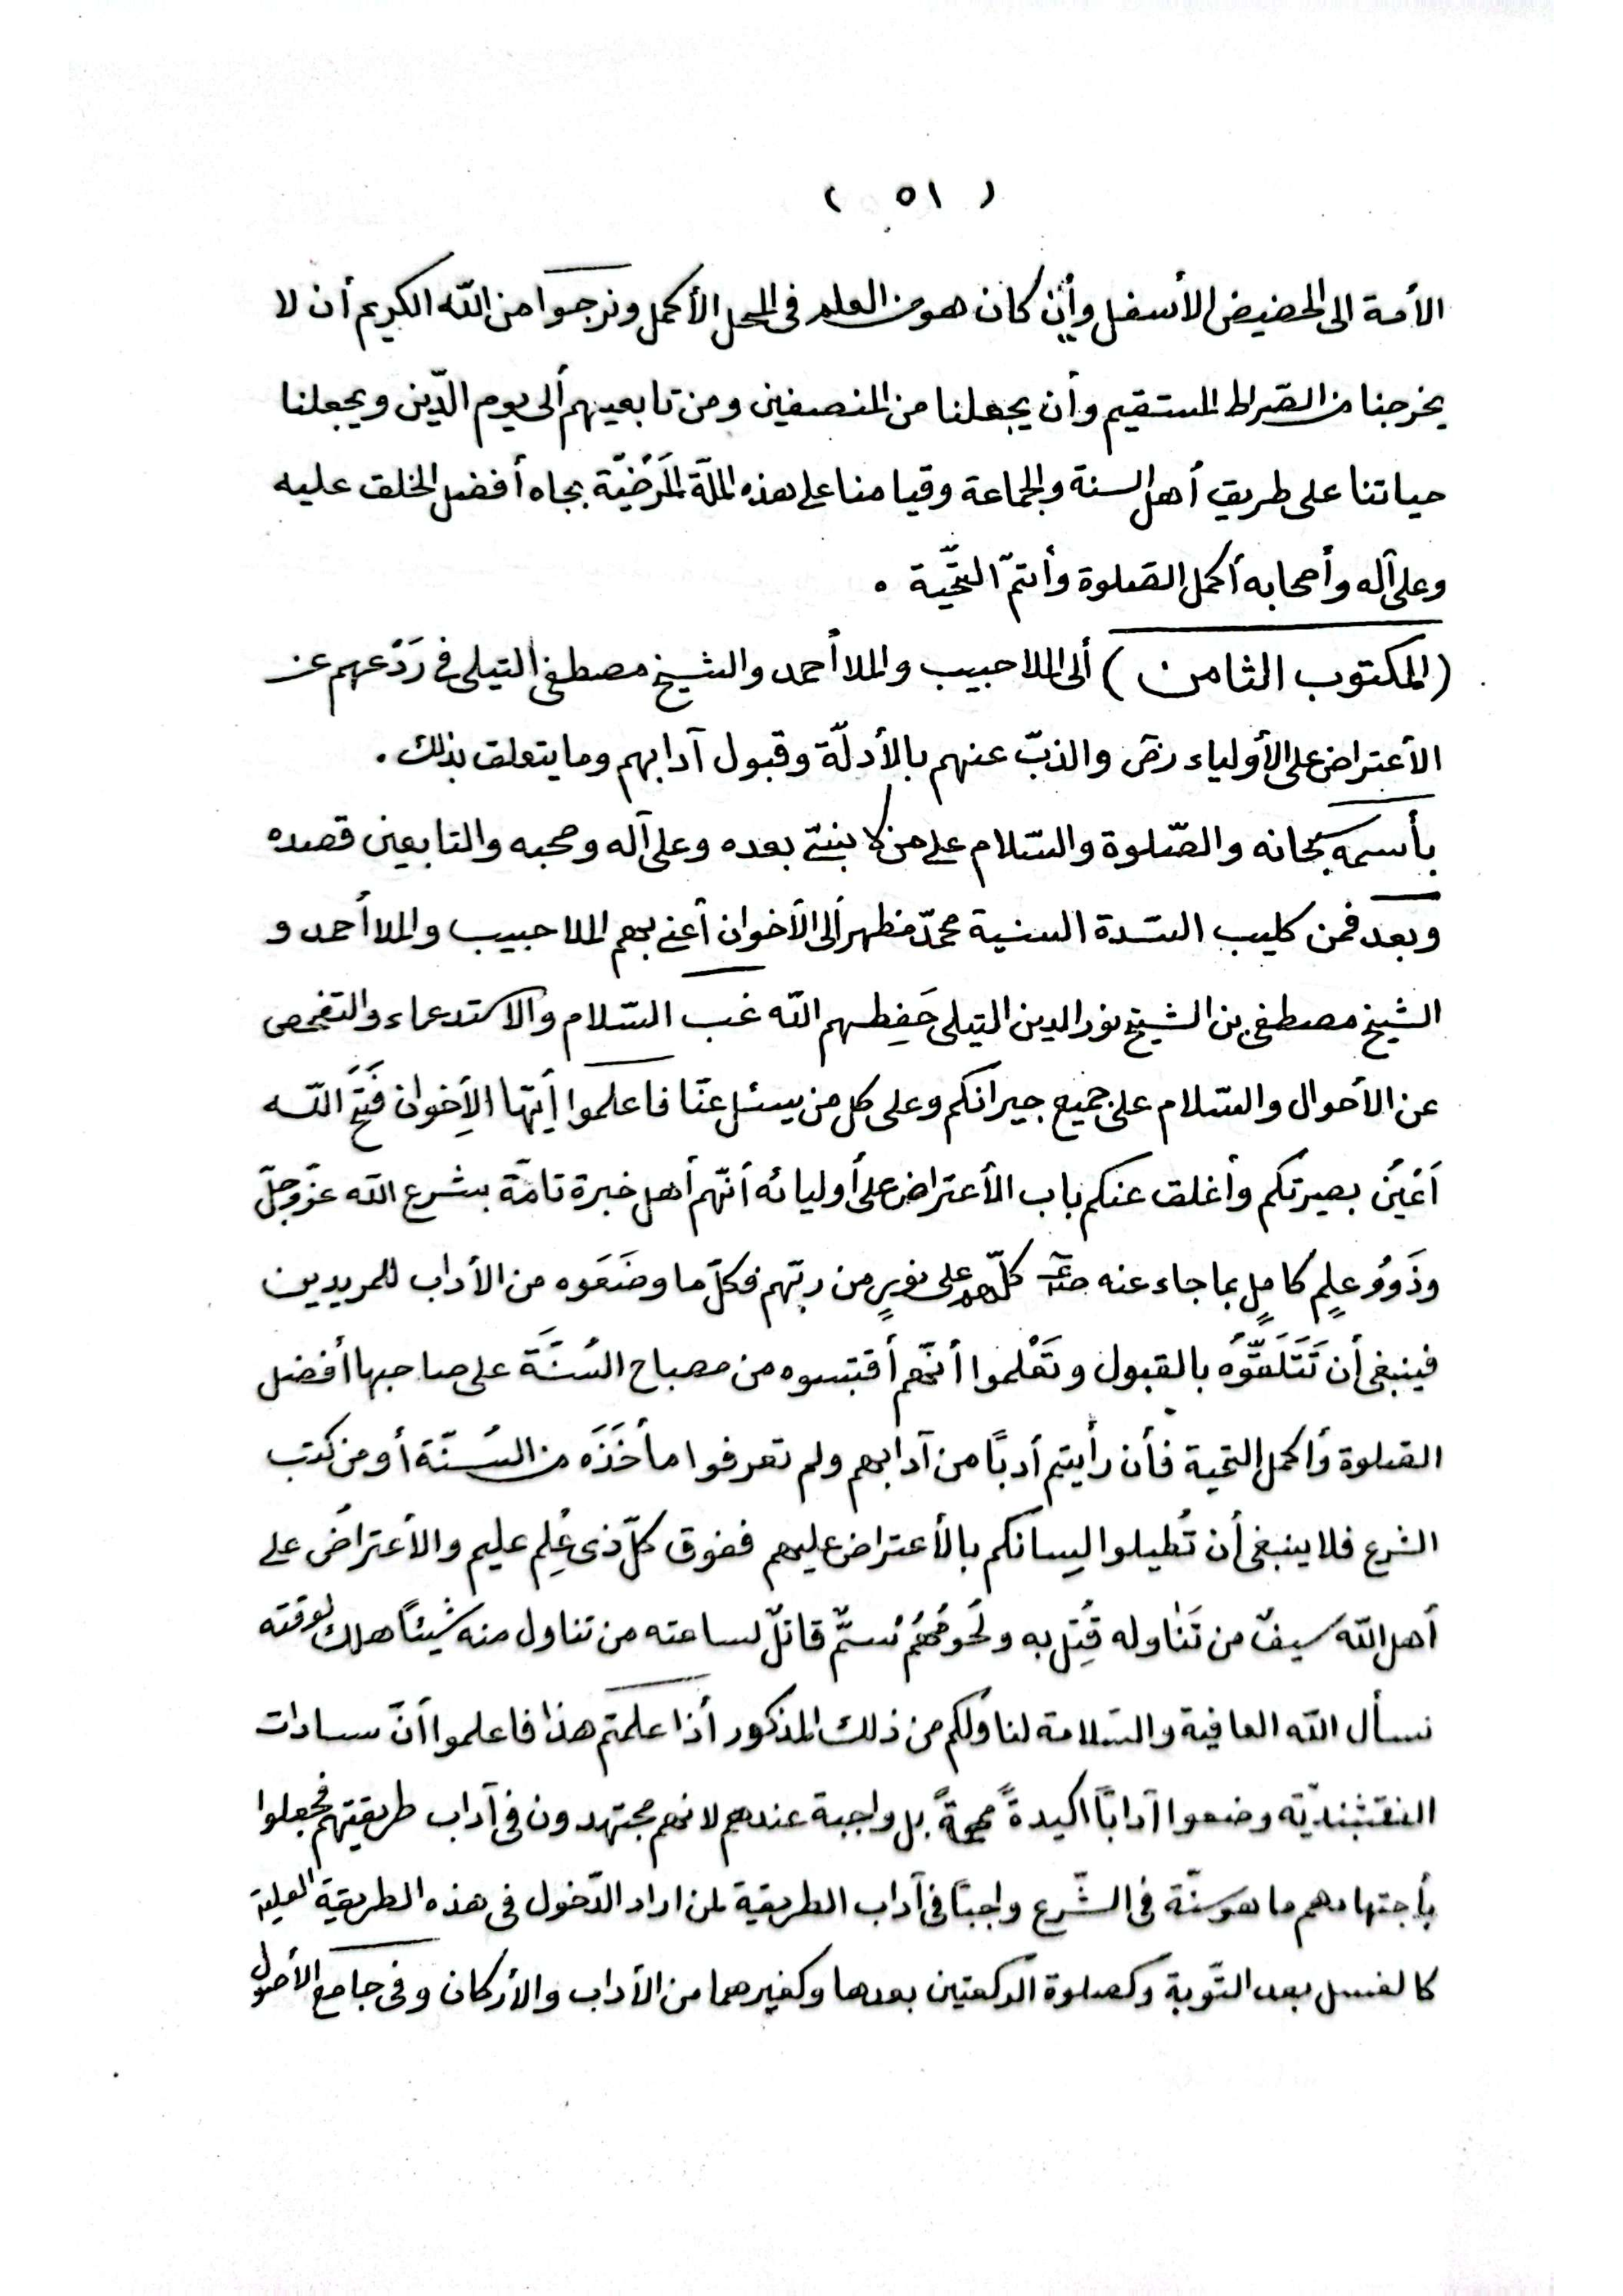 ( ٥١ )
الأمة الى الحضيض الأسفل وأن كان هو من العلم فى المحل الأكمل ونرجوا من الله الكريم أن لا
يخرجنا من الصّراط المستقيم وأن يجعلنا من المنصفين ومن تابعيهم ألى يوم الدّين ويجعلنا
حياتنا على طريق أهل السنة والجماعة وقيامنا على هذه الملّة المَرْضيّة بجاه أفضل الخلق عليه
وعلى آله وأصحابه أكمل الصّلوة وأتمّ التّحيّة .
(المكتوب الثامن) ألى الملا حبيب والملا أحمد والشيخ مصطفى التيلى فى رَدْعهم عن
الأعتراض على الأولياء رض والذبّ عنهم بالأدلّة وقبول آدابهم وما يتعلق بذلك .
بأسمه سبحانه والصّلوة والسّلام على من لا نبىّ بعده وعلى آله وصحبه والتابعين قصده
وبعد فمن كليب السّدة السنية محمّد مظهر ألى الأخوان أعنى بهم الملا حبيب والملا أحمد و
الشيخ مصطفى بن الشيخ نور الدين التيلى حَفِظهم الله غب السّلام والاستدعاء والتفحص
عن الأحوال والسّلام على جميع جيرانكم وعلى كل من يسئل عنّا فاعلموا أيّها الأِخوان فَتَحَ الله
اَعْيُنَ بصيرتكم وأغلق عنكم باب الأعتراض على أوليائه أنّهم أهل خبرة تامّة بشرع الله عزّ وجلّ
وذَوُو علمٍ كاملٍ بما جاء عنه كلّهم على نورٍ من ربّهم فكلّ ما وضَعَوه من الأداب للمريدين
فينبغى أن تَتَلَقَّوْه بالقبول وتَعْلموا أنّهم أقتبسوه من مصباح السُنَّة على صاحبها أفضل
الصّلوة وأكمل التحية فأن رأيتم أدبًا من آدابهم ولم تعرفوا مأخَذَه من السُنّة أو من كتب
الشرع فلا ينبغى أن تُطيلوا لِسانكم بالأعتراض عليهم ففوق كلّ ذى عُلِم عليم والأعتراضُ على
أهل الله سيفٌ من تَنٰاوله قُتِل به ولُحُومُهُمْ سُمٌّ قاتلٌ لساعته من تناول منه شيئًا هلك لوقته
نسأل الله العافية والسّلامة لنا ولكم من ذلك المذكور أذا علمتم هذا فاعلموا أنّ سادات
النقشبنديّة وضعوا آدابًا اكيدةً مهمةً بل واجبة عندهم لانهم مجتهدون فى آداب طريقتهم فجعلوا
بأجتهادهم ما هو سنّة فى الشّرع واجبًا فى آداب الطريقة لمن اراد الدّخول فى هذه الطريقة العلية
كالغسل بعد التّوبة وكصلوة الرّكعتين بعدها وكغيرهما من الأداب والأركان وفى جامع الأصول